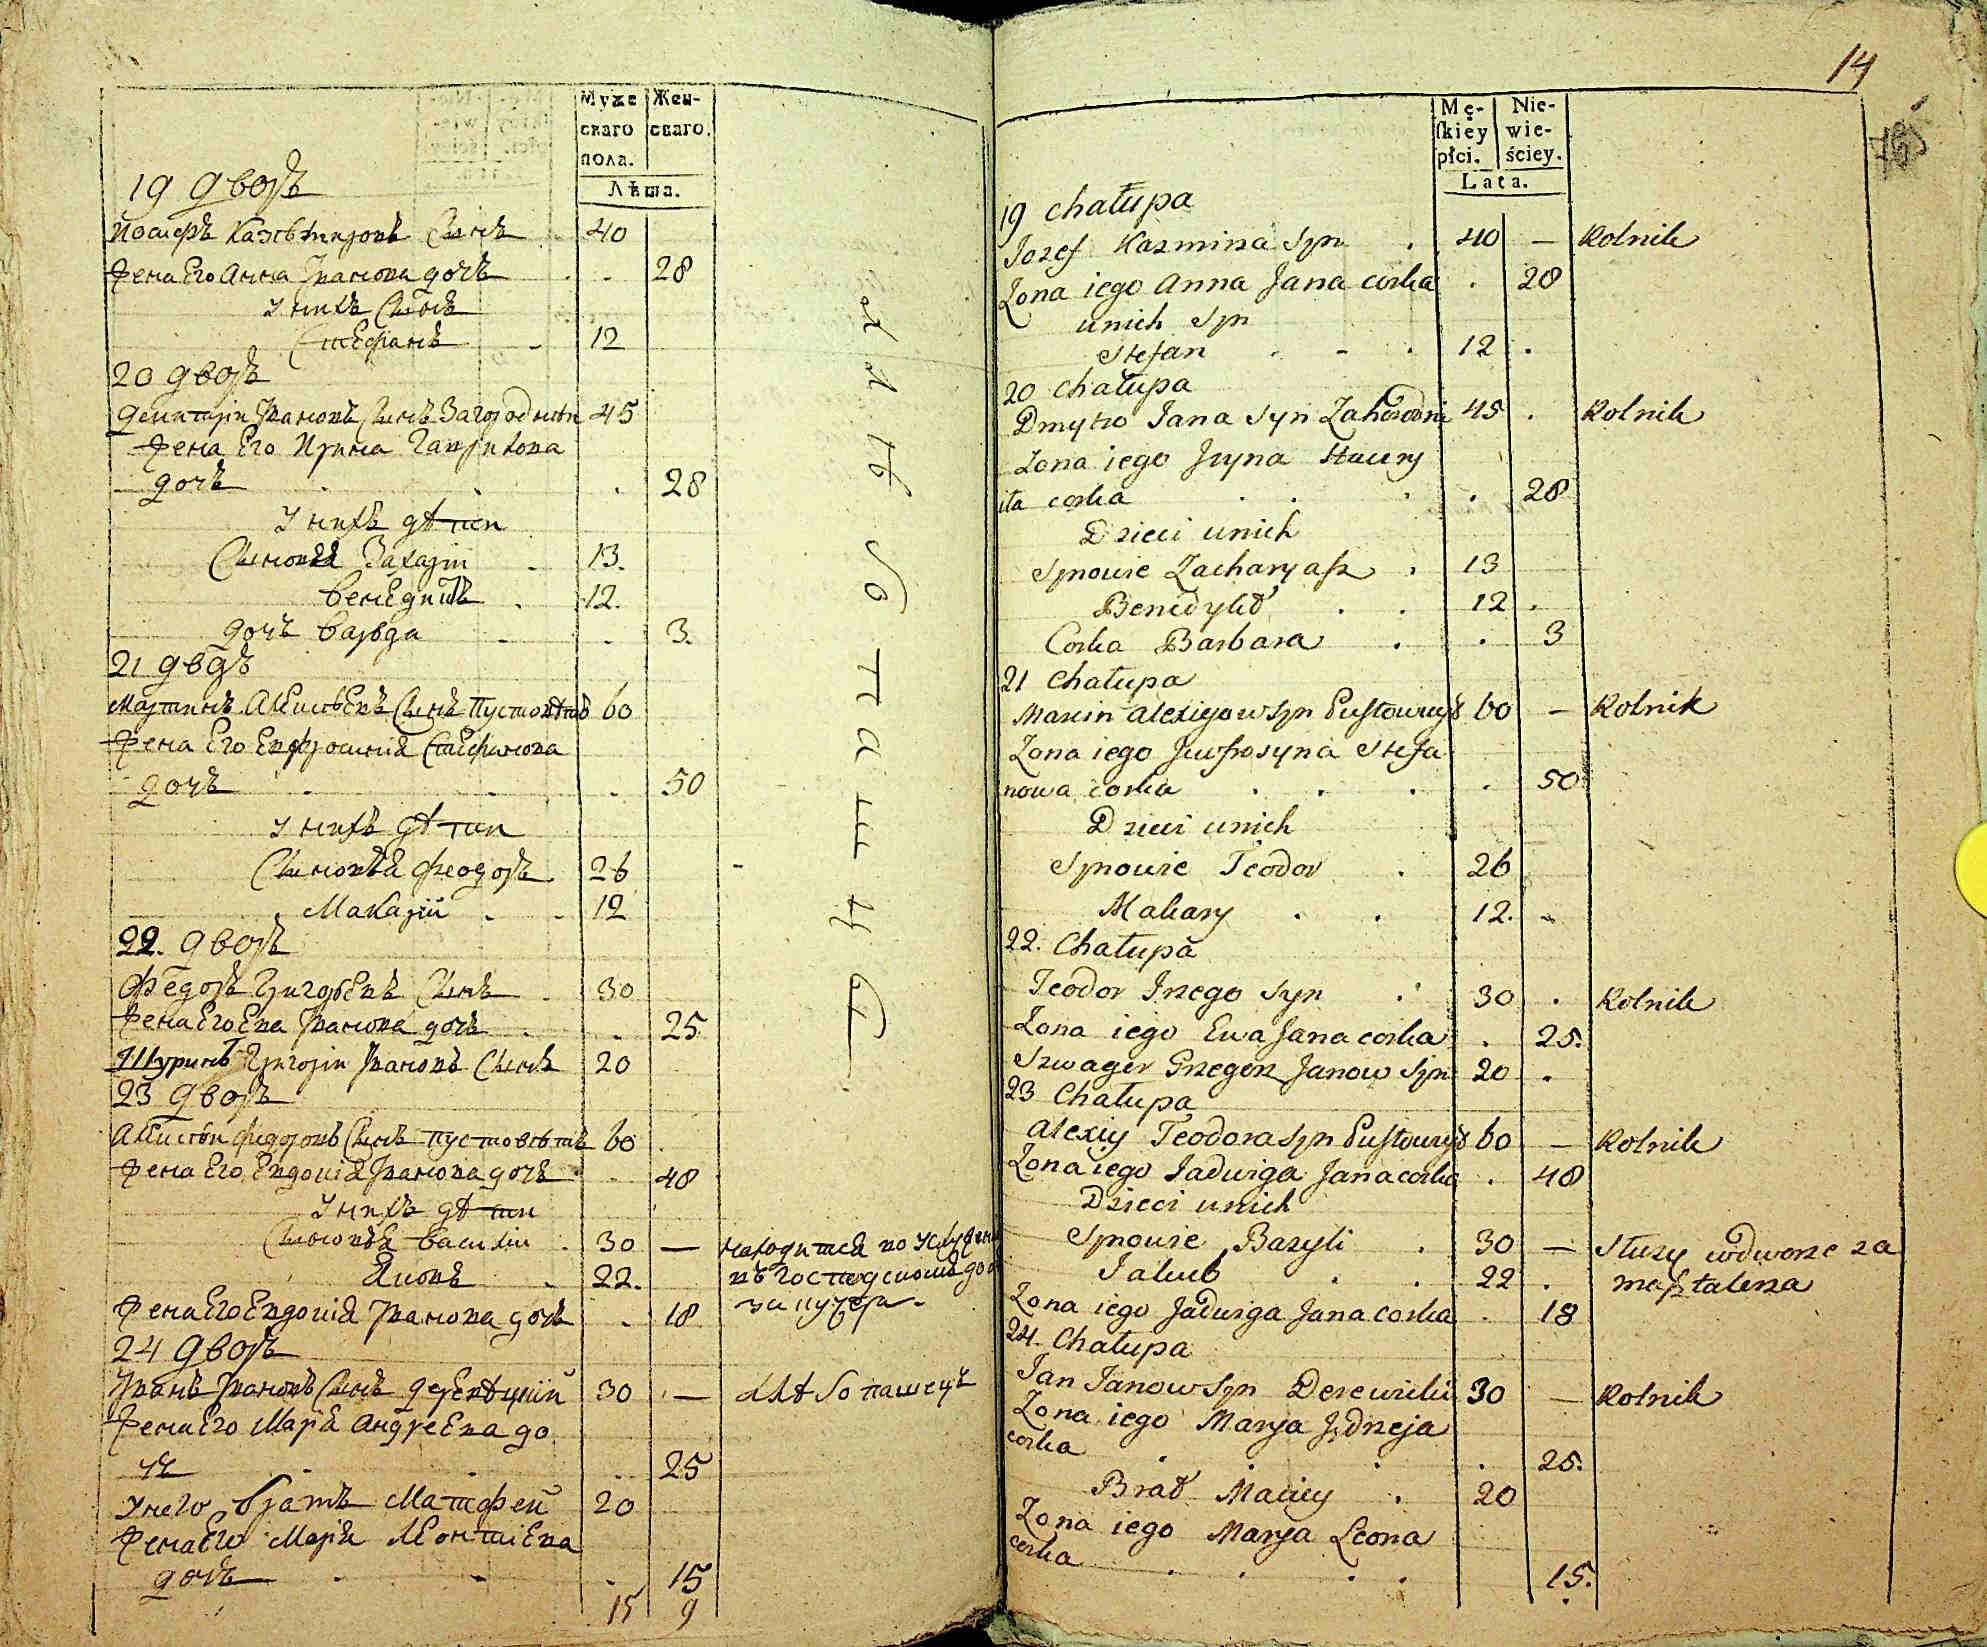 Муже
скаго
пола.
Жен-
скаго.
Лѣта.
19 дворъ
Иосифъ Казьмировъ Сынъ 40
Жена Его Анна Иванова дочь 28
У нихъ Сынъ
Стефанъ 12
20 дворъ
Димитрiи Ивановъ Сынъ Загородныи 45
Жена Его Ирина Гаврилова
дочь 28
У нихъ дѣти
Сыновья Захарiи 13.
Бенедиктъ 12.
дочь 3.
21 дворъ
Мартинъ Алексѣевъ Сынъ 60
Жена Его Евфросинiя Стефанова
дочь 50
У нихъ дѣти
Сыновья Феодоръ 26
Макарiи 12
22. дворъ
Федоръ Григорьевъ Сынъ 30
Жена Его Ева Иванова дочь 25
Шуринъ Григорiи Ивановъ Сынъ 20
23 дворъ
Алексѣи Федоровъ Сынъ 60
Жена Его Евдокiя Иванова дочь 48
У нихъ дѣти
Сыновья Василiи 30 — находится во
Яковъ 22.
Жена Его Евдокiя Иванова дочь 18
24 дворъ
Иванъ Ивановъ Сынъ 30 — хлѣбопашецъ
Жена Его Марiя Андреева до
чь 25
У него братъ Матфей 20
Жена Его Марiя Леонтiева
дочь 15
15 9
14
Mę-
ſkiey
płci.
Nie-
wie-
ściey.
Lata.
19 chałupa
Jozef Kazmirza Syn 40 — Rolnik
Zona iego Anna Jana corka 28
unich Syn
Stefan 12
20 chałupa
Dmytro Jana Syn Zahorodni 45 Rolnik
Zona iego Jryna
corka 28
Dzieci unich
Synowie Zacharyasz 13
Benedykt 12
Corka Barbara 3
21 Chałupa
Marcin Alexiyow Syn 60 — Rolnik
Zona iego Jewfrosyna Stefa
nowa corka 50
Dzieci unich
Synowie Teodor 26
Makary 12.
22. Chałupa
Teodor Syn 30 Rolnik
Zona iego Ewa Jana corka 25.
Szwager Grzegorz Janow Syn 20
23 Chałupa
Alexiy Teodora Syn 60 — Rolnik
Zona iego Jadwiga Jana corka 48
Dzieci unich
Synowie Bazyli 30 — Służy wdworze za
Jakub 22 masztalerza
Zona iego Jadwiga Jana corka 18
24. Chałupa
Jan Janow Syn Derewicki 30 — Rolnik
Zona iego Marya Jędrzeja
corka 25.
Brat Maciey 20
Zona iego Marya Leona
corka 15.